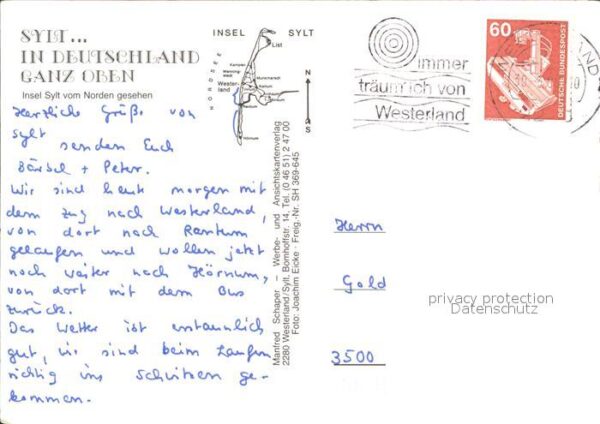 SYLT...
IN DEUTSCHLAND
GANZ OBEN
Insel Sylt vom Norden gesehen
INSEL SYLT
List
NORDSEE
Kampen
Wenning-
stedt
Wester-
land
Munkmarsch
Keitum
Rantum
Hörnum
N
S
Herzliche Grüße von
Sylt senden Euch
Bärbel + Peter.
Wir sind heute morgen mit
dem Zug nach Westerland,
von dort nach Rantum
gelaufen und wollen jetzt
noch weiter nach Hörnum,
von dort mit dem Bus
zurück.
Das Wetter ist erstaunlich
gut, wir sind beim Laufen
richtig ins Schwitzen ge-
kommen.
Manfred Schaper – Werbe- und Ansichtskartenverlag
2280 Westerland/Sylt, Bomhoffstr. 14, Tel. (0 46 51) 2 47 00
Foto: Joachim Eicke · Freig.-Nr. SH 369-645
immer
träum' ich von
Westerland
60
DEUTSCHE BUNDESPOST
Herrn
Gold
3500
privacy protection
Datenschutz